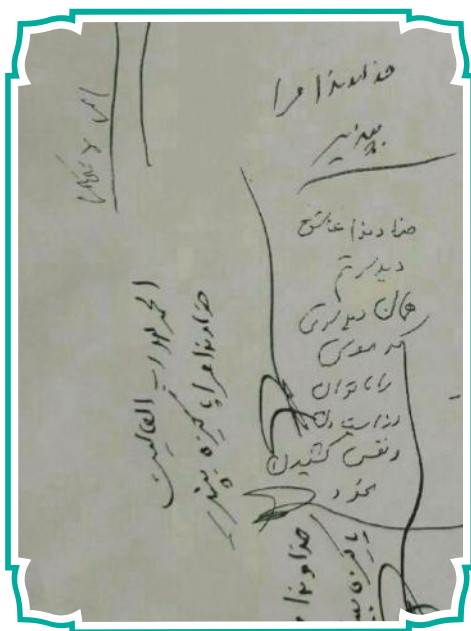 خداوندا مرا
بپذیر
خداوندا عاشق
دیدارتم
همان دیداری
که موسی
را ناتوان
و نفس کشیدن
نمود
الحمدلله رب العالمین
خداوندا مرا پاکیزه بپذیر
خداوندا
پاکیزه